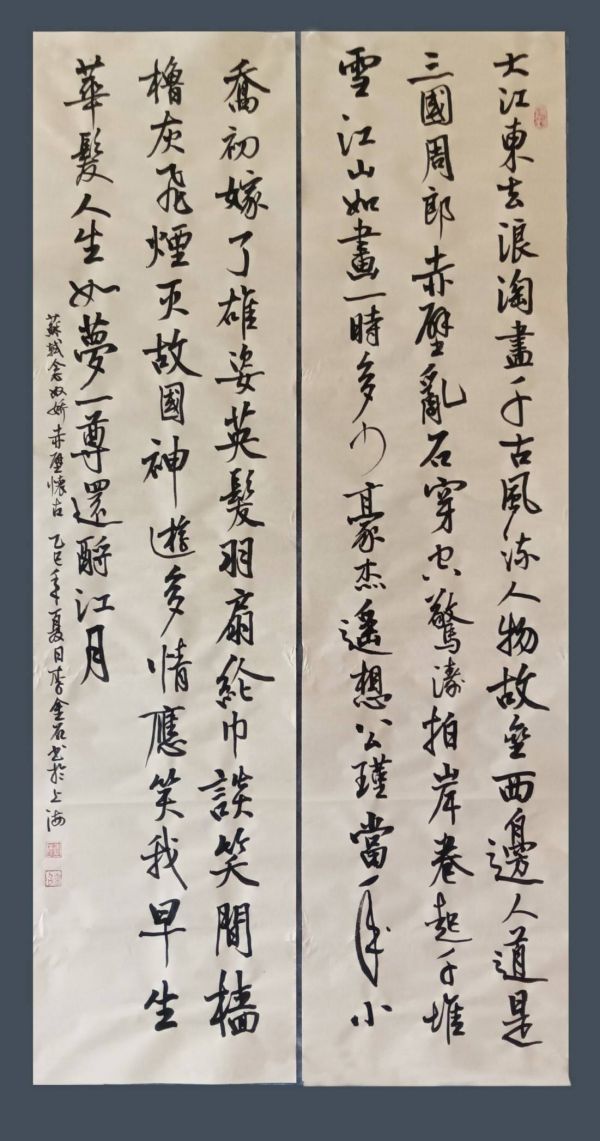 大江東去浪淘盡千古風流人物故壘西邊人道是
三國周郎赤壁亂石穿空驚濤拍岸卷起千堆
雪江山如畫一時多少豪杰遥想公瑾當年小
喬初嫁了雄姿英髮羽扇纶巾談笑間檣
櫓灰飛煙灭故國神遊多情應笑我早生
華髮人生如夢一尊還酹江月
蘇軾念奴娇赤壁懷古 乙巳年夏日李金石书於上海